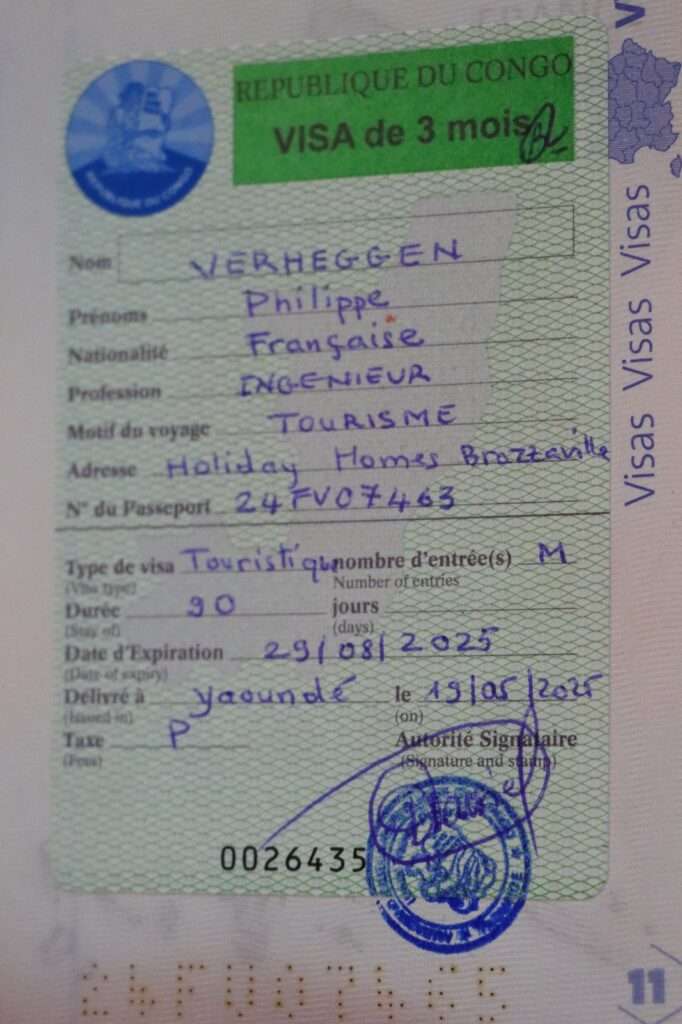 REPUBLIQUE DU CONGO
VISA de 3 mois
REPUBLIQUE DU CONGO
Nom VERHEGGEN
Prénoms Philippe
Nationalité Française
Profession INGENIEUR
Motif du voyage TOURISME
Adresse Holiday Homes Brazzaville
N° du Passeport 24FV07463
Type de visa Touristique nombre d'entrée(s) M
(Visa type) Number of entries
Durée 90 jours
(Stay of) (days)
Date d'Expiration 29/08/2025
(Date of expiry)
Délivré à Yaoundé le 19/05/2025
(Issued in) (on)
Taxe P Autorité Signataire
(Fees) (Signature and stamp)
0026435
Visas Visas Visas
11